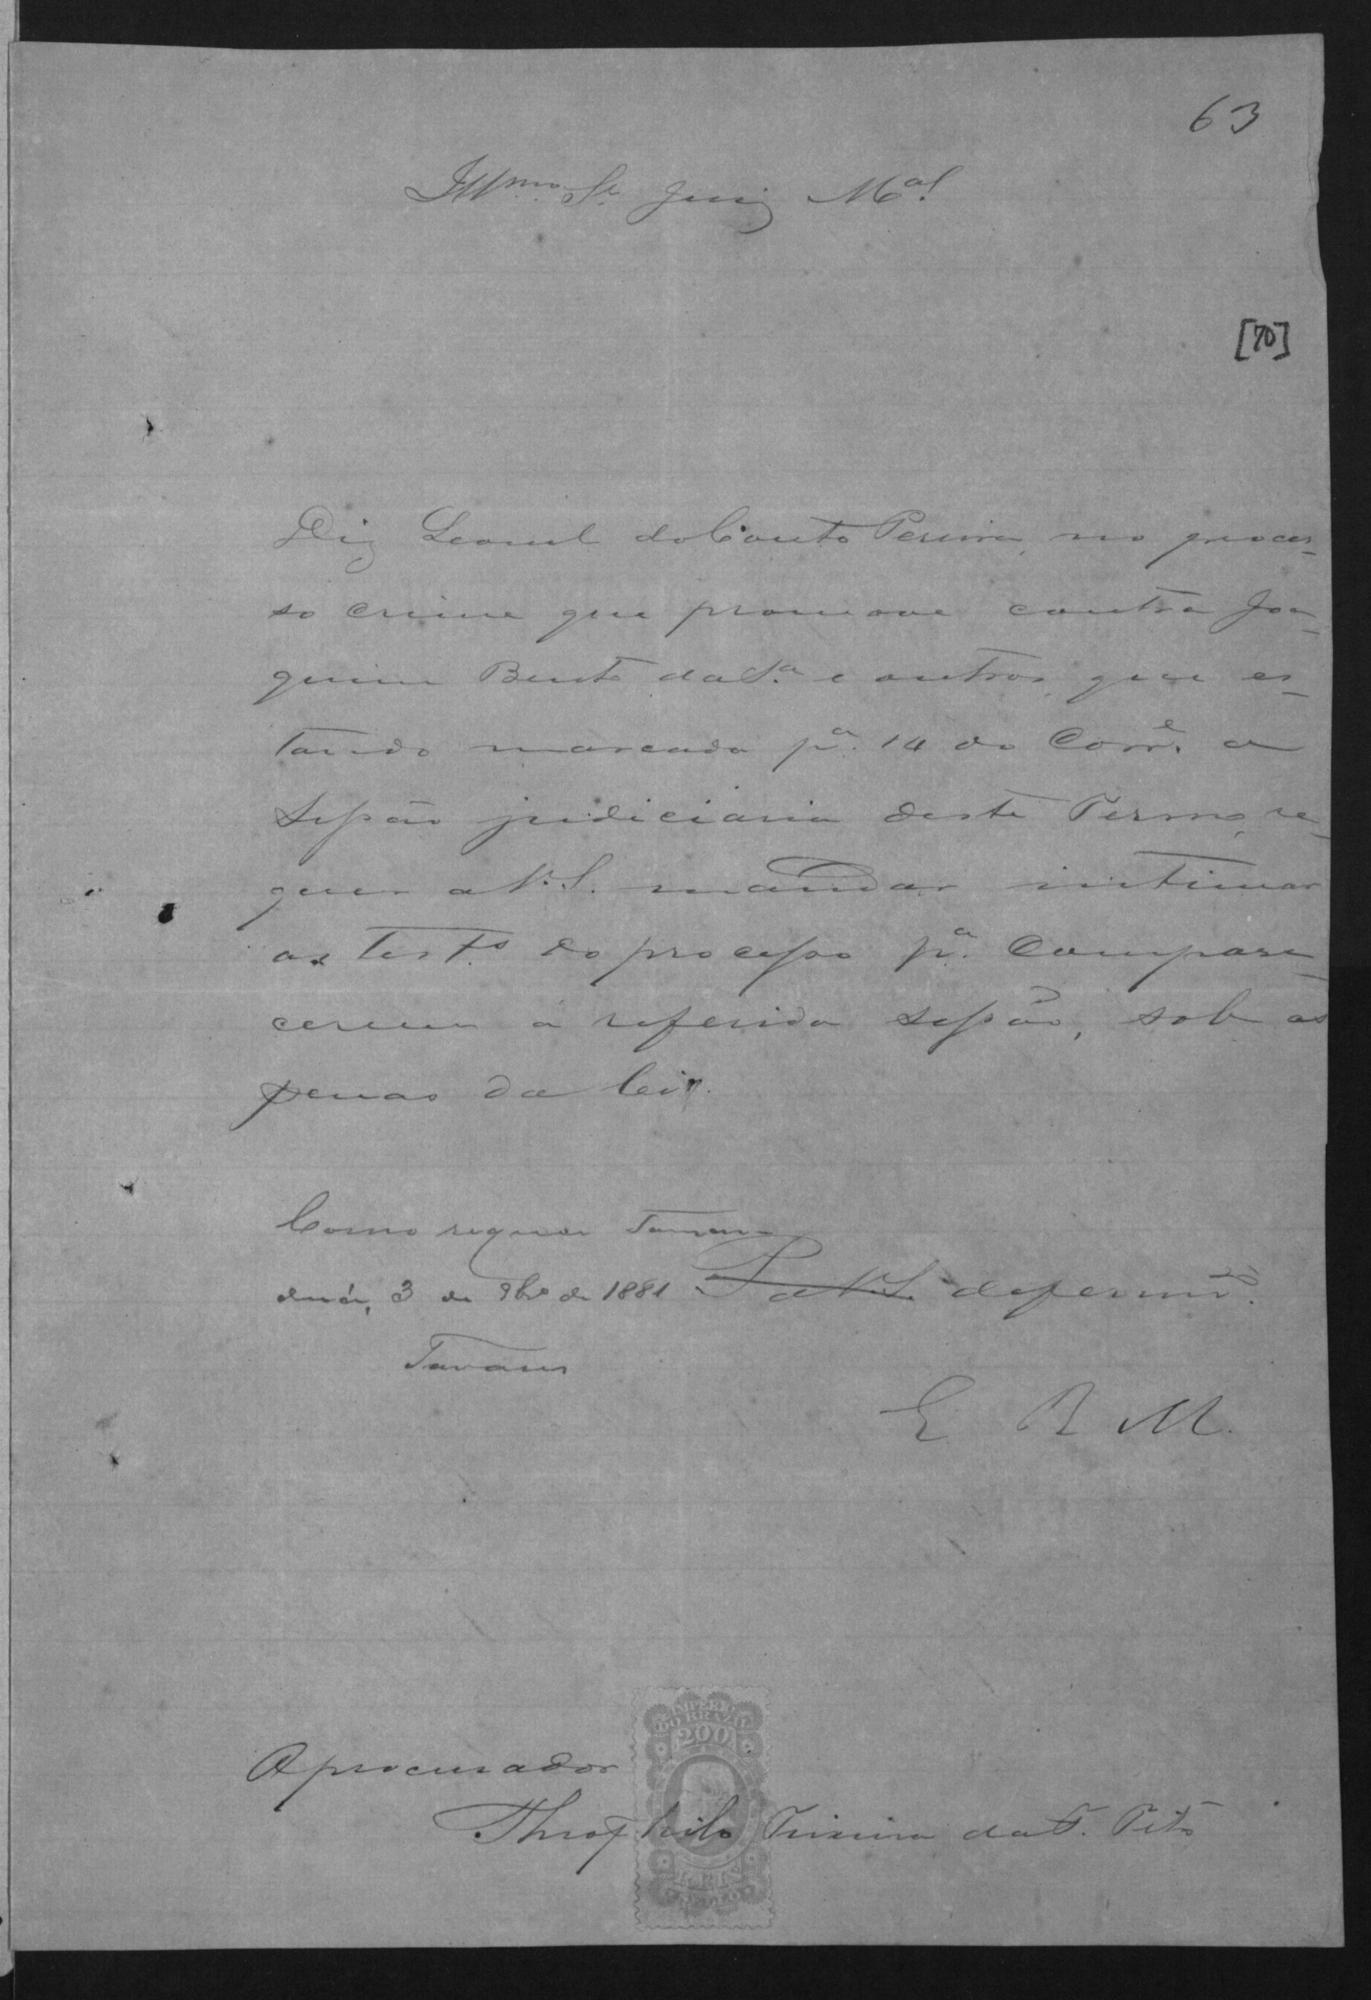 63
Illmo. Sr. Juiz Mal.
[70]
Diz Leonel do Couto Pereira, no proces-
so crime que promove contra Joa-
quim Bento da Sa. e outros, que es-
tando marcada pa. 14 do Corre. a
Sessão judiciaria deste Termo, re-
quer a V. S. mandar intimar
as testas. do processo pa. Compare-
cerem á referida sessão, sob as
penas da lei.
Como requer
3 de 9bro de 1881
P a V. S. deferimto.
Tavares
E. R. M.
IMPERIO
DO BRAZIL
200
O procurador
Theophilo Teixeira da F. Pito
REIS